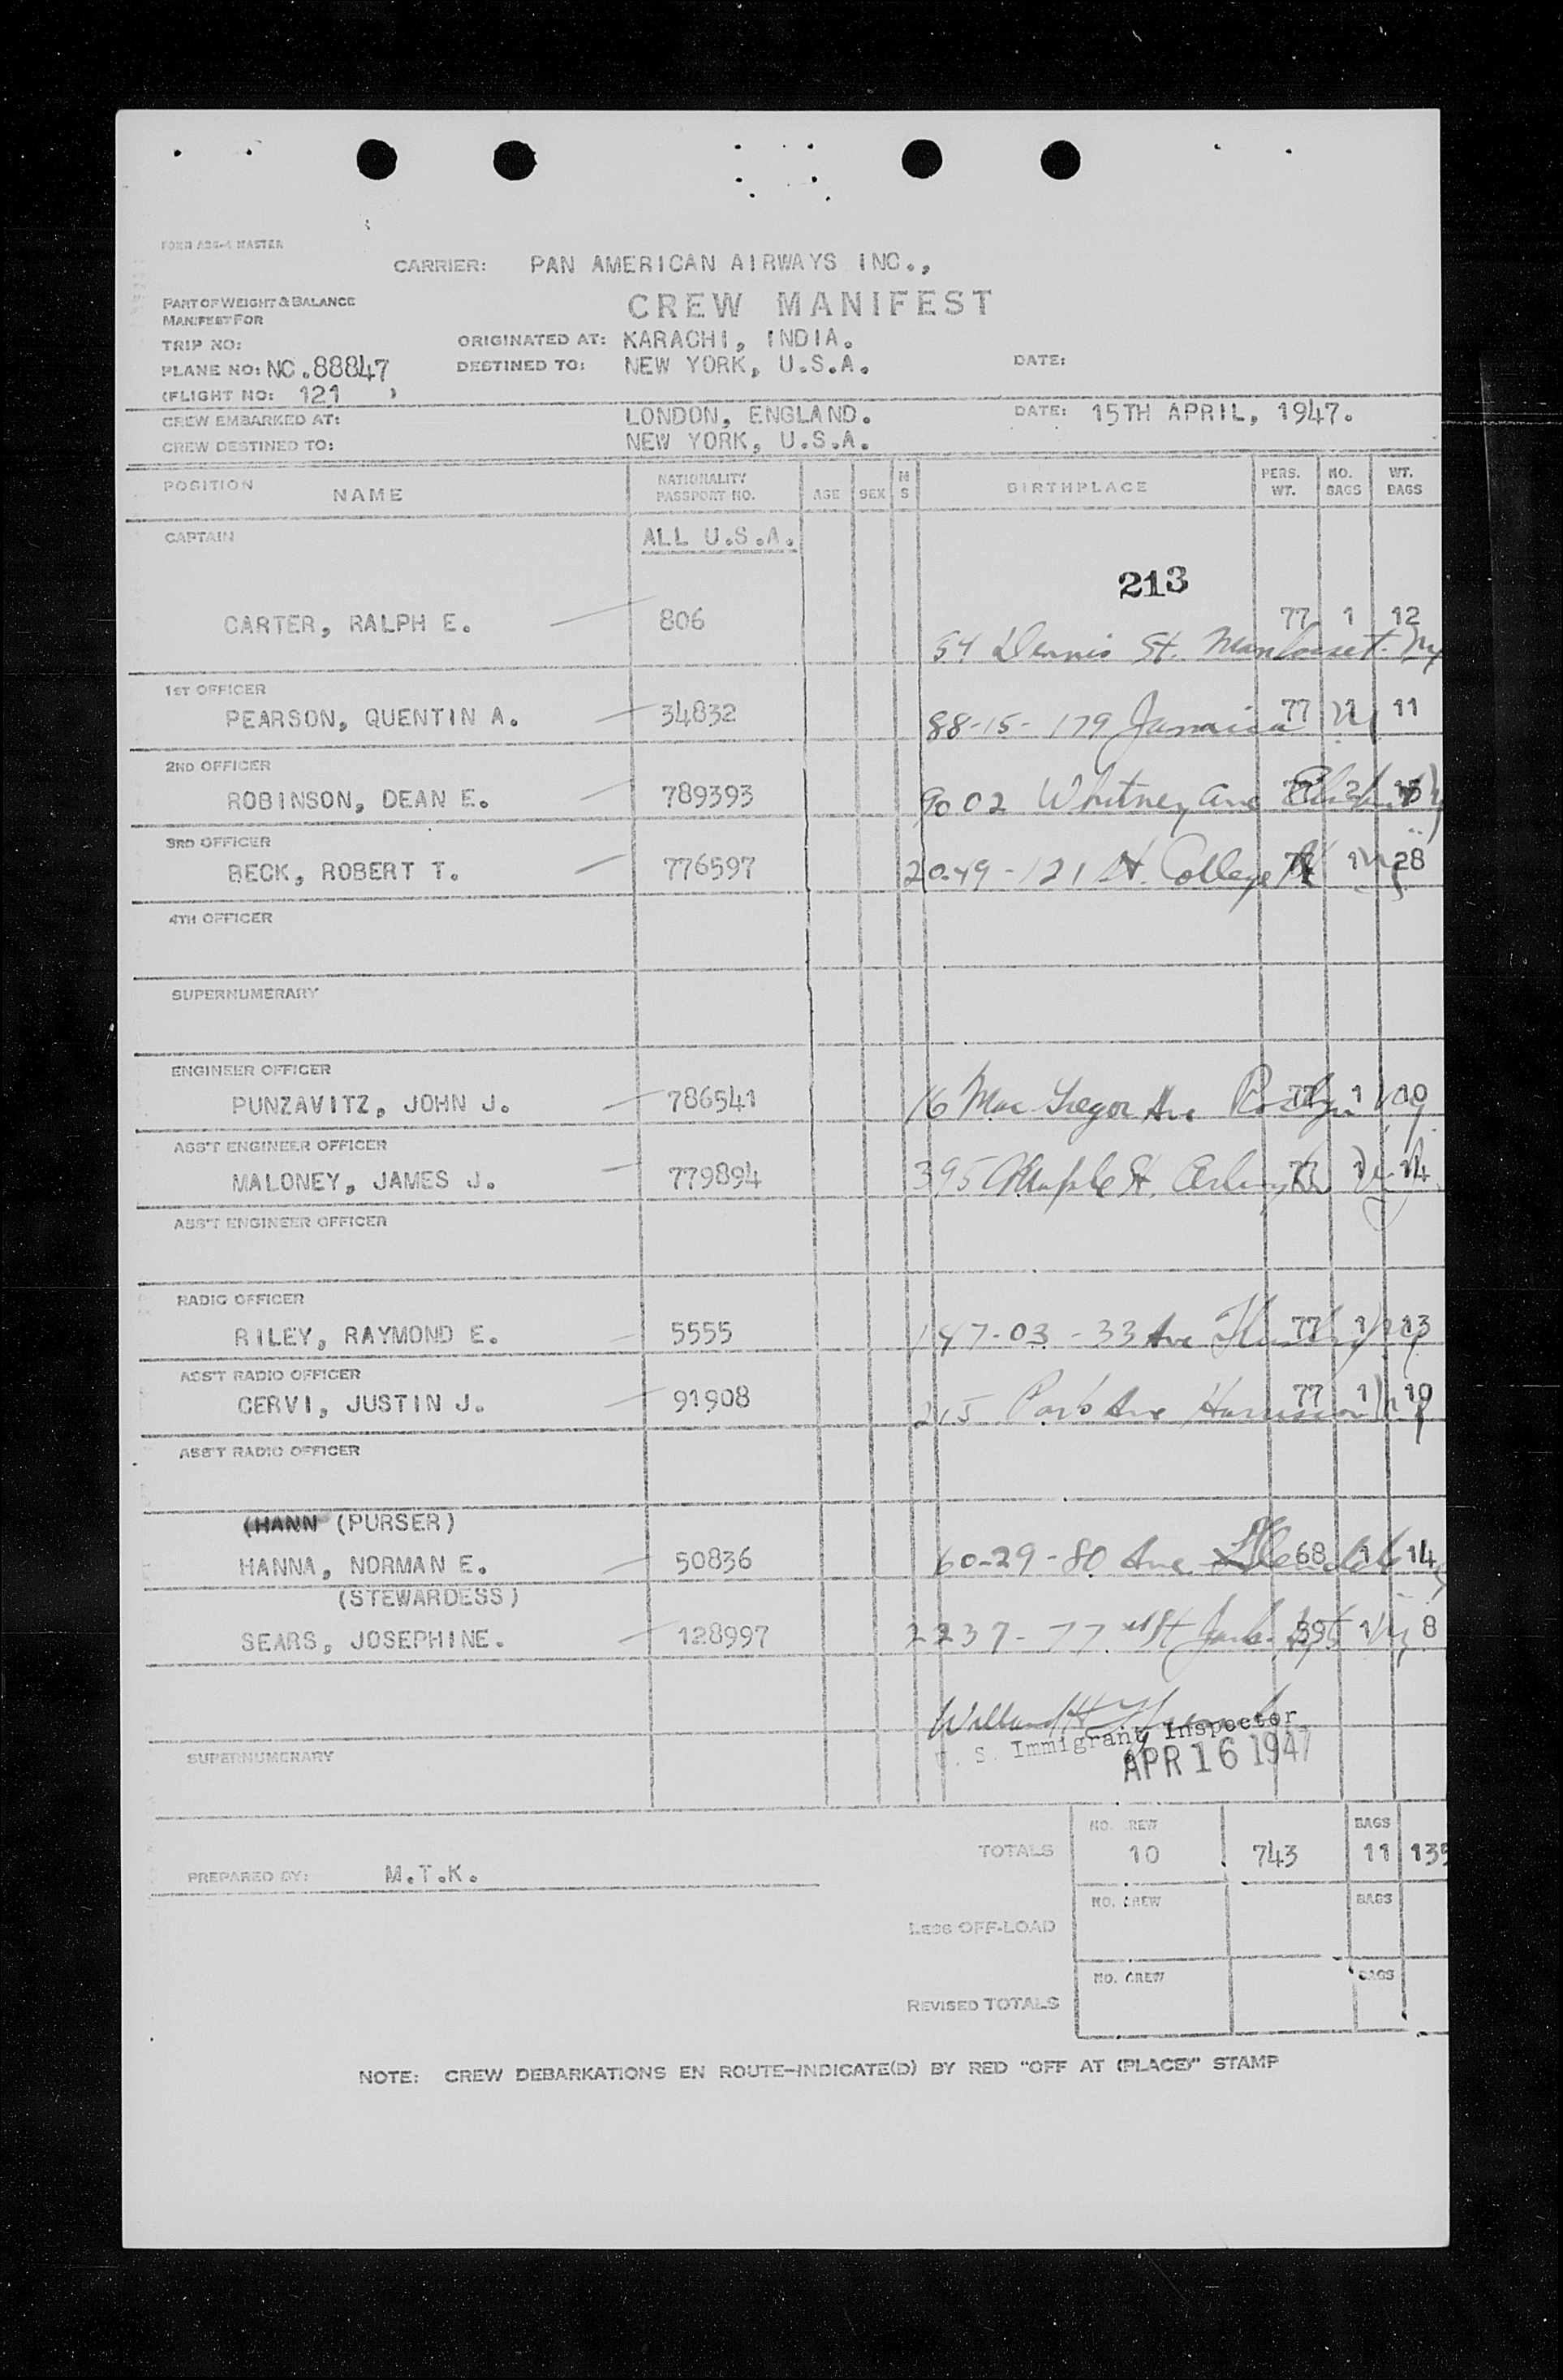 FORM A26-4 MASTER
CARRIER: PAN AMERICAN AIRWAYS INC.,
PART OF WEIGHT & BALANCE
MANIFEST FOR
CREW MANIFEST
TRIP NO: ORIGINATED AT: KARACHI, INDIA.
PLANE NO: NC.88847 DESTINED TO: NEW YORK, U.S.A. DATE:
(FLIGHT NO: 121 )
CREW EMBARKED AT: LONDON, ENGLAND. DATE: 15TH APRIL, 1947.
CREW DESTINED TO: NEW YORK, U.S.A.
POSITION NAME NATIONALITY PASSPORT NO. AGE SEX M S BIRTHPLACE PERS. WT. NO. BAGS WT. BAGS
CAPTAIN ALL U.S.A.
213
CARTER, RALPH E. 806 77 1 12
54 Dennis St. Manhasset. Ny
1ST OFFICER
PEARSON, QUENTIN A. 34832 88-15-179 Jamaica 77 1 11
2ND OFFICER
ROBINSON, DEAN E. 789393 9002 Whitney Ave 2
3RD OFFICER
BECK, ROBERT T. 776597 20-49-121 St. College 1 28
4TH OFFICER
SUPERNUMERARY
ENGINEER OFFICER
PUNZAVITZ, JOHN J. 786541 16 Mac Gregor Ave 77 1 10
ASS'T ENGINEER OFFICER
MALONEY, JAMES J. 779894 395 St. 77 1 14
ASS'T ENGINEER OFFICER
RADIO OFFICER
RILEY, RAYMOND E. 5555 147-03-33 Ave 77 1 13
ASS'T RADIO OFFICER
CERVI, JUSTIN J. 91908 215 Park Ave Harrison 77 1 10
ASS'T RADIO OFFICER
(HANN (PURSER)
HANNA, NORMAN E. 50836 60-29-80 Ave 68 1 14
(STEWARDESS)
SEARS, JOSEPHINE. 128997 2237-77 St 1 8
U. S. Immigrant Inspector
APR 16 1947
SUPERNUMERARY
TOTALS NO. CREW 10 743 BAGS 11 135
PREPARED BY: M.T.K.
LESS OFF-LOAD NO. CREW BAGS
REVISED TOTALS NO. CREW BAGS
NOTE: CREW DEBARKATIONS EN ROUTE-INDICATE(D) BY RED "OFF AT (PLACE)" STAMP